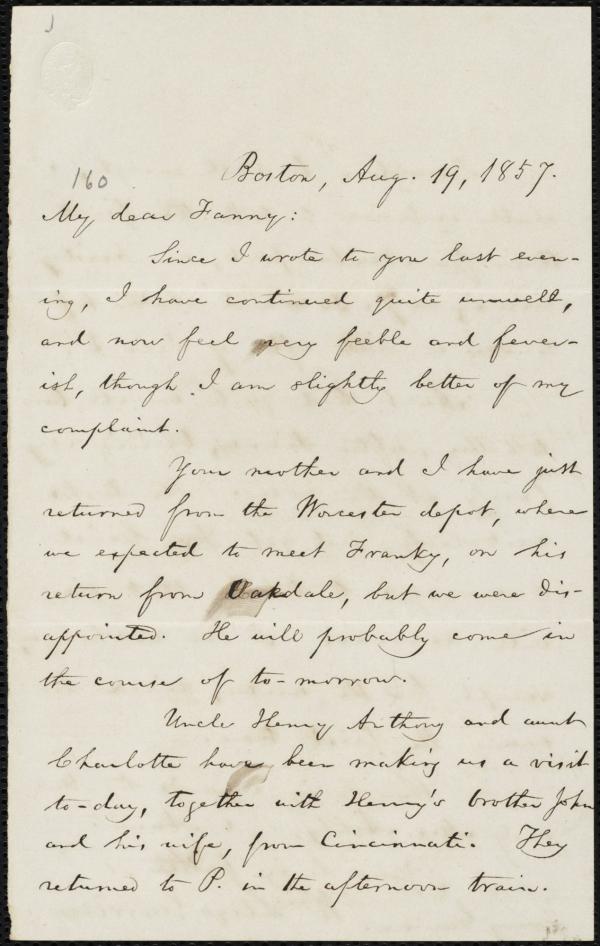 160
Boston, Aug. 19, 1857.
My dear Fanny:
Since I wrote to you last even-
ing, I have continued quite unwell,
and now feel very feeble and fever-
ish, though I am slightly better of my
complaint.
Your mother and I have just
returned from the Worcester depot, where
we expected to meet Franky, on his
return from Oakdale, but we were dis-
appointed. He will probably come in
the course of to-morrow.
Uncle Henry Anthony and aunt
Charlotte have been making us a visit
to-day, together with Henry's brother John
and his wife, from Cincinnati. They
returned to P. in the afternoon train.